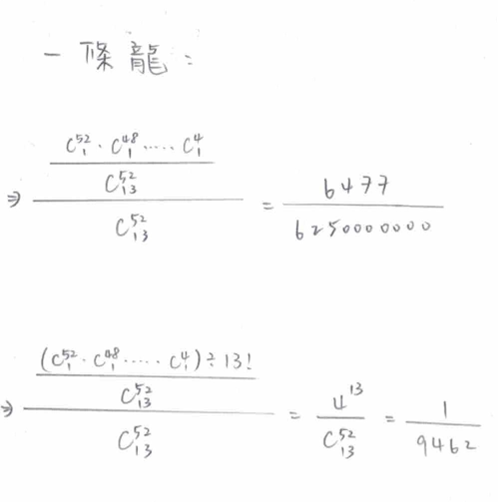 一條龍:
⇒ \frac{\frac{C^{52}_{1} \cdot C^{48}_{1} \cdots\cdot C^{4}_{1}}{C^{52}_{13}}}{C^{52}_{13}} = \frac{6477}{6250000000}
⇒ \frac{\frac{(C^{52}_{1} \cdot C^{48}_{1} \cdots\cdot C^{4}_{1}) ÷ 13!}{C^{52}_{13}}}{C^{52}_{13}} = \frac{4^{13}}{C^{52}_{13}} = \frac{1}{9462}